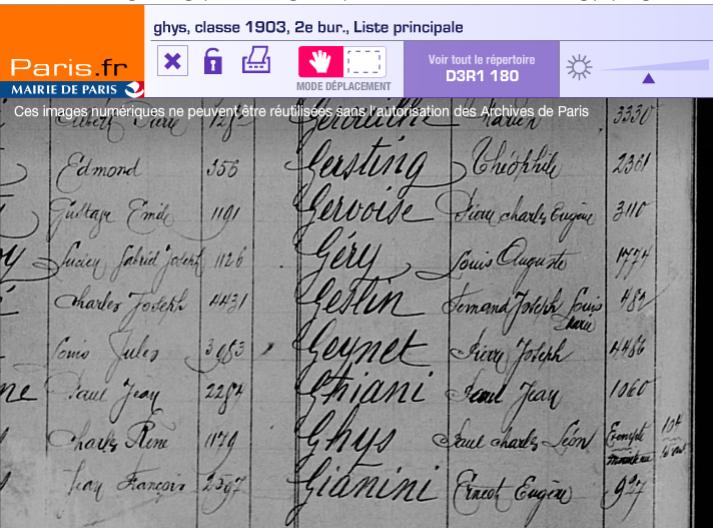 ghys, classe 1903, 2e bur., Liste principale
Paris.fr
MAIRIE DE PARIS
MODE DÉPLACEMENT
Voir tout le répertoire
D3R1 180
Ces images numériques ne peuvent être réutilisées sans l'autorisation des Archives de Paris
3330
Edmond 356 Gersting Théophile 2361
Gustave Emile 1191 Gervoise Pierre charles Eugène 3110
Lucien Gabriel Joseph 1126 Géry Louis Auguste 1774
Charles Joseph 4431 Geslin Fernand Joseph Louis 482
Marie
Louis Jules 3983 Geynet Pierre Joseph 4486
Paul Jean 2284 Ghiani Paul Jean 1060
Charles René 1179 Ghys Paul charles Léon Exempté 104
Jean François 2597 Gianini Ernest Eugène 997